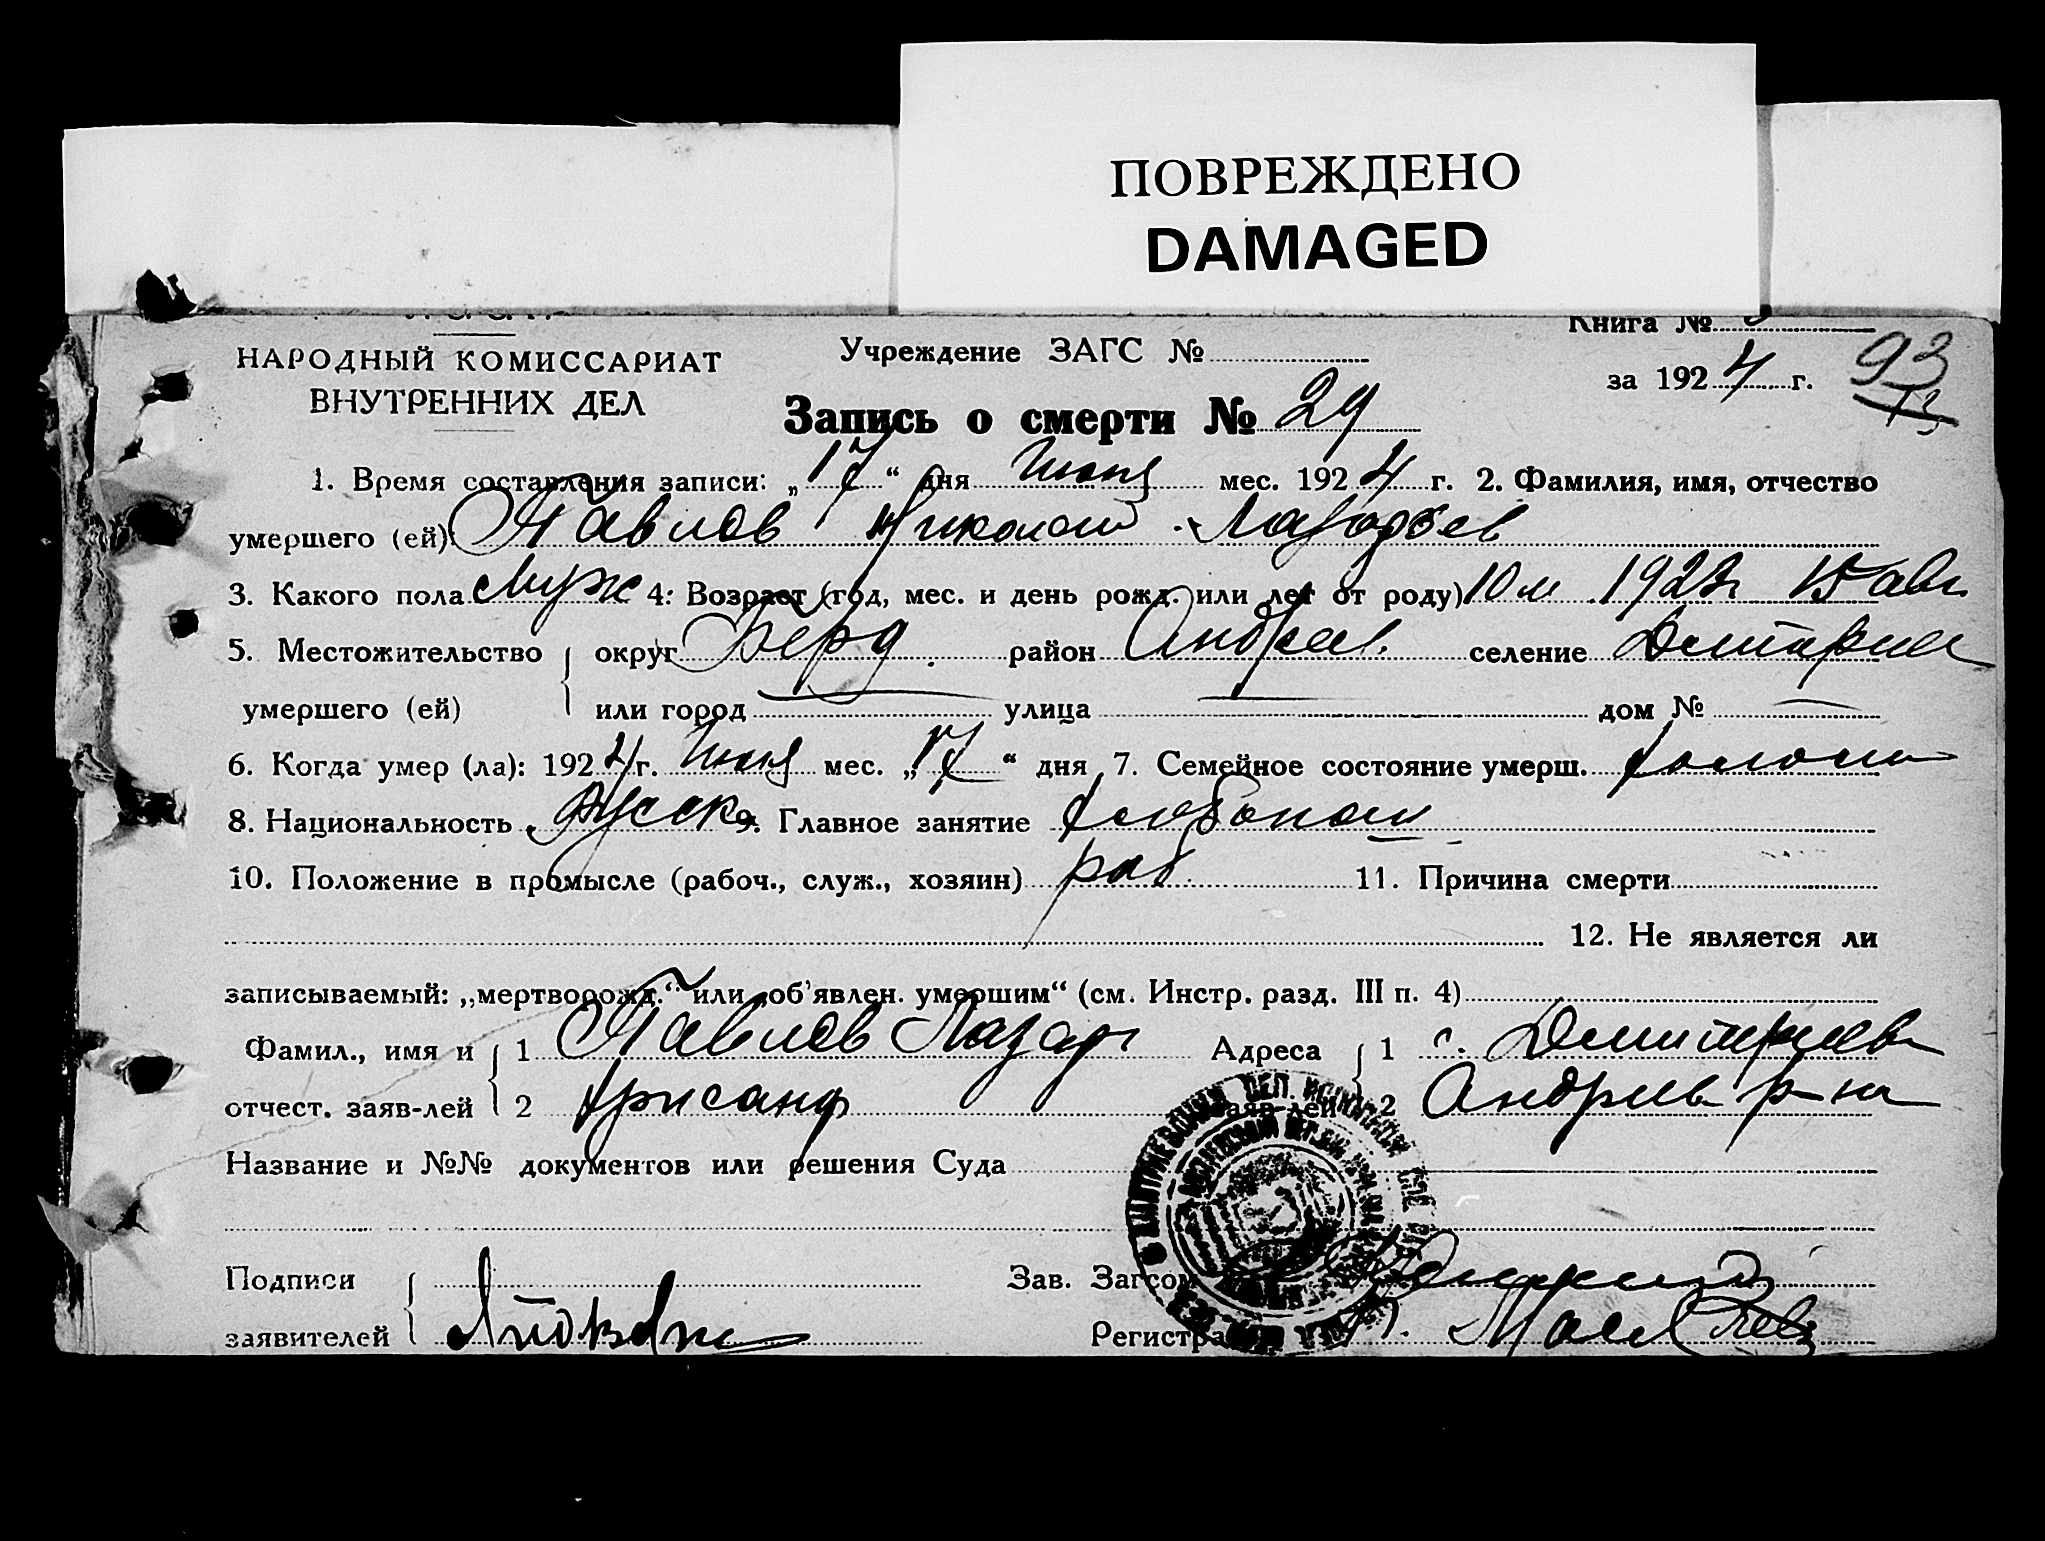 ПОВРЕЖДЕНО
DAMAGED
Книга №
НАРОДНЫЙ КОМИССАРИАТ
ВНУТРЕННИХ ДЕЛ
Учреждение ЗАГС №
за 1924 г.
93
13
Запись о смерти № 29
1. Время составления записи: „17“ дня Июня мес. 1924 г. 2. Фамилия, имя, отчество
умершего (ей): Павлов Николай
3. Какого пола муж 4. Возраст (год, мес. и день рожд. или лет от роду) 10 м 1923 15 авг.
5. Местожительство округ Берд. район Андреев. селение
умершего (ей) или город — улица — дом № —
6. Когда умер (ла): 1924 г. Июня мес. „17“ дня 7. Семейное состояние умерш. холост
8. Национальность Русск. 9. Главное занятие хлебопаш
10. Положение в промысле (рабоч., служ., хозяин) раб. 11. Причина смерти
12. Не является ли
записываемый: „мертворожд.“ или „об'явлен. умершим“ (см. Инстр. разд. III п. 4)
Фамил., имя и 1 Павлов Лазарь Адреса 1 с. Дмитриев
отчест. заяв-лей 2 Хрисанф заяв-лей 2 Андреев р-на
Название и №№ документов или решения Суда
Подписи Зав. Загсом
заявителей Регистра